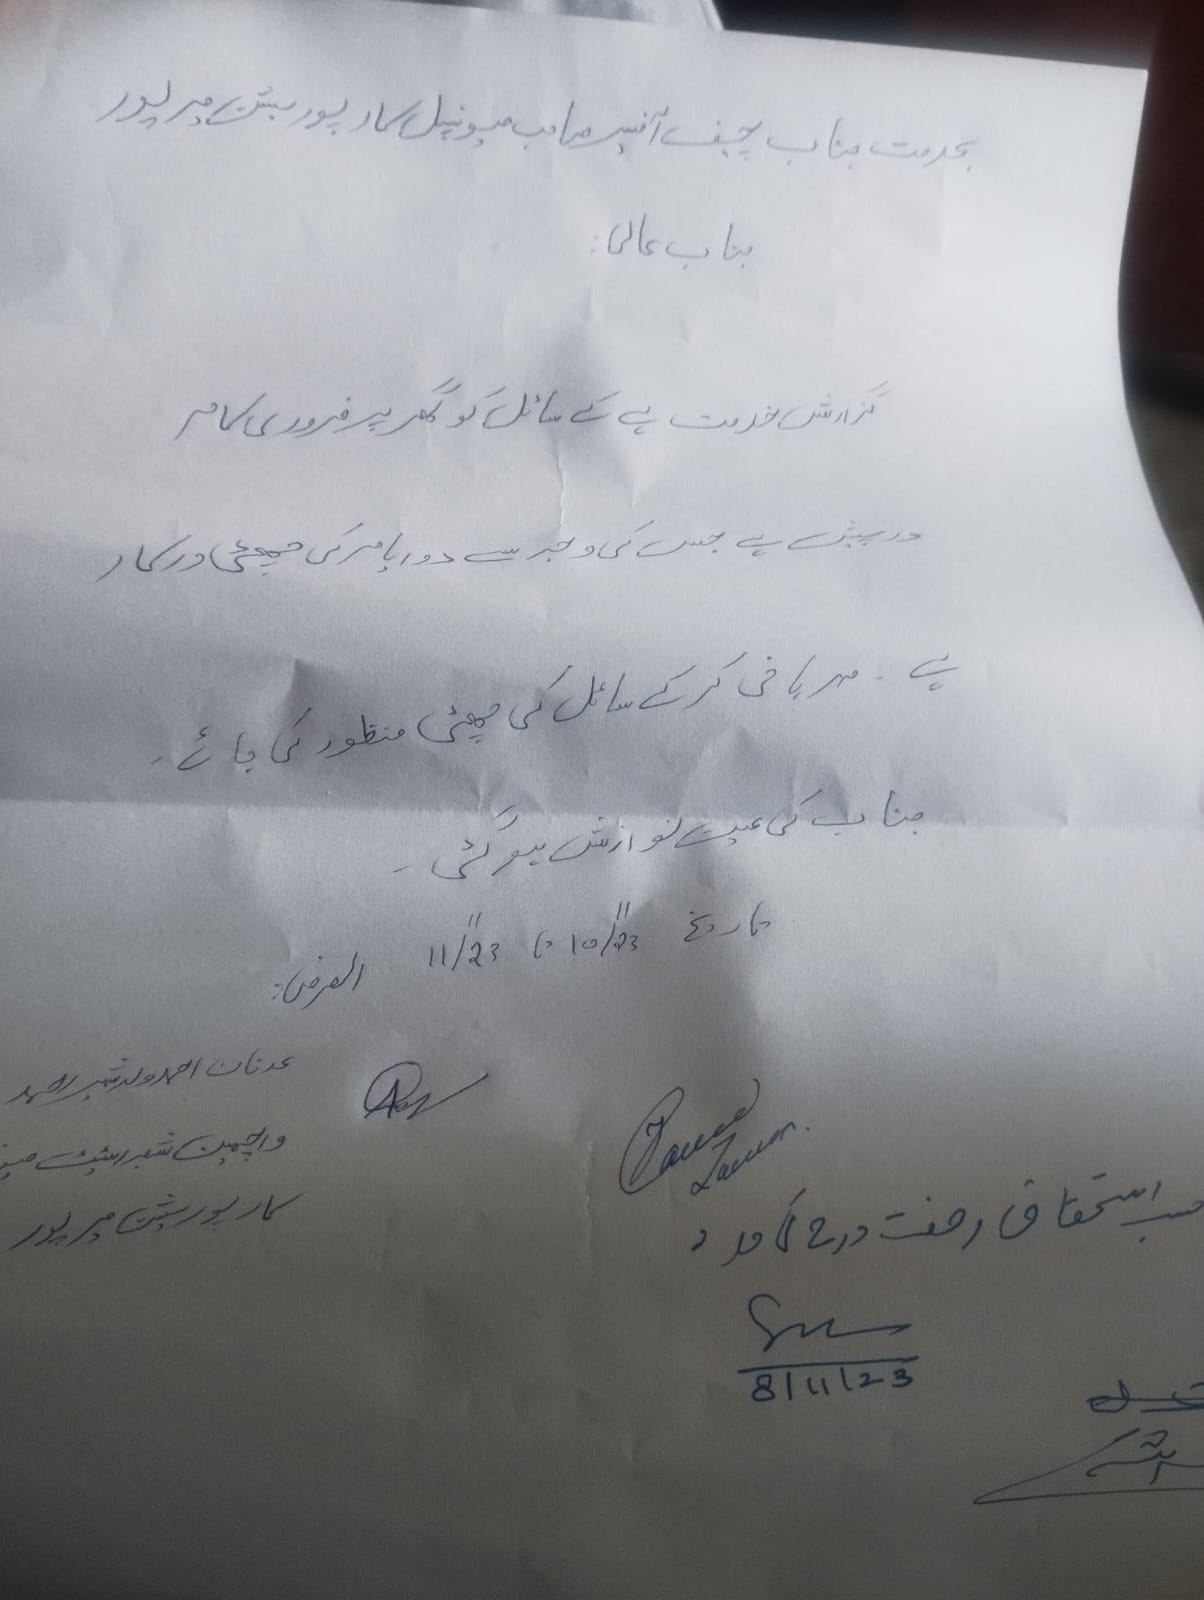 بخدمت جناب چیف آفیسر صاحب میونسپل کارپوریشن میرپور
جناب عالی:
گزارش خدمت ہے کے سائل کو گھر پر ضروری کام
درپیش ہے جس کی وجہ سے دو ایام کی چھٹی درکار
ہے۔ مہربانی کر کے سائل کی چھٹی منظور کی جائے۔
جناب کی عین نوازش ہو گئی۔
تاریخ 10/11/23 تا 11/11/23 العرض:
عدنان احمد ولد شبیر احمد
واچمین
کارپوریشن میرپور
حسب استحقاق رخصت درج
8/11/23